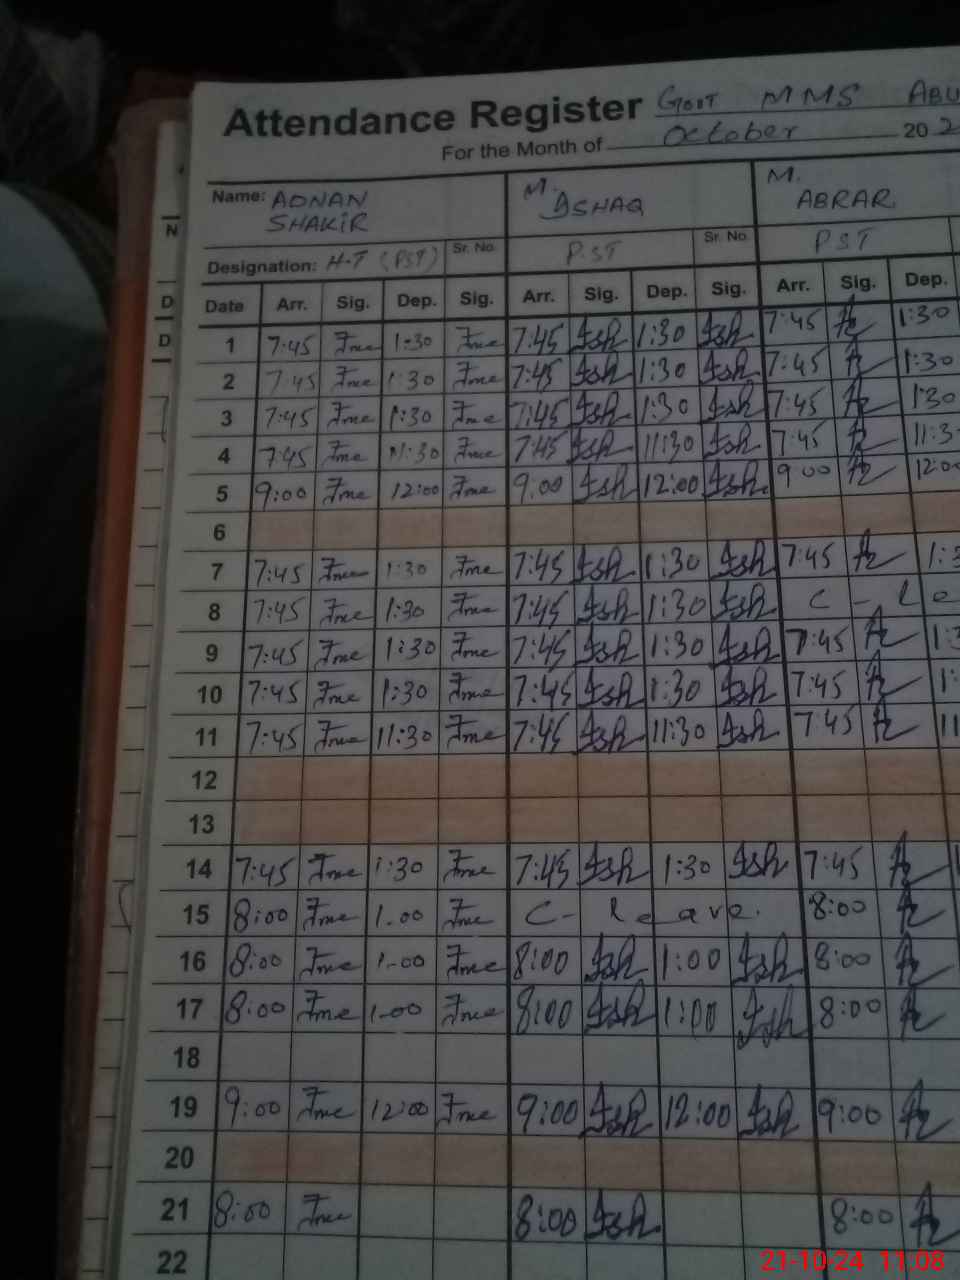 Attendance Register GOVT MMS ABU
For the Month of October 20 2
Name: ADNAN SHAKIR M. ASHAQ M. ABRAR
Designation: H-T (PST) Sr. No. P.ST Sr. No. PST
Date Arr. Sig. Dep. Sig. Arr. Sig. Dep. Sig. Arr. Sig. Dep.
1 7:45 1:30 7:45 Ish 1:30 Ish 7:45 1:30
2 7:45 1:30 7:45 Ish 1:30 Ish 7:45 1:30
3 7:45 1:30 7:45 Ish 1:30 Ish 7:45 1:30
4 7:45 11:30 7:45 Ish 11:30 Ish 7:45 11:3
5 9:00 12:00 9.00 Ish 12:00 Ish 9 00 12:00
6
7 7:45 1:30 7:45 Ish 1:30 Ish 7:45 1:3
8 7:45 1:30 7:45 Ish 1:30 Ish C - Le
9 7:45 1:30 7:45 Ish 1:30 Ish 7:45 1:3
10 7:45 1:30 7:45 Ish 1:30 Ish 7:45 1:
11 7:45 11:30 7:45 Ish 11:30 Ish 7:45 11
12
13
14 7:45 1:30 7:45 Ish 1:30 Ish 7:45
15 8:00 1-00 C- leave. 8:00
16 8:00 1-00 8:00 Ish 1:00 Ish 8:00
17 8:00 1-00 8:00 Ish 1:00 Ish 8:00
18
19 9:00 12:00 9:00 Ish 12:00 Ish 9:00
20
21 8:00 8:00 Ish 8:00
22
21-10-24 11:08